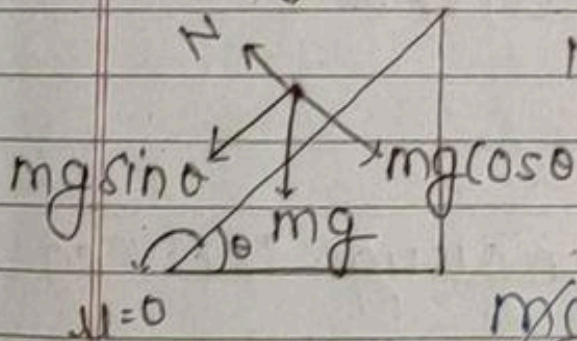 N
mg sinθ
mg cosθ
θ
mg
μ=0